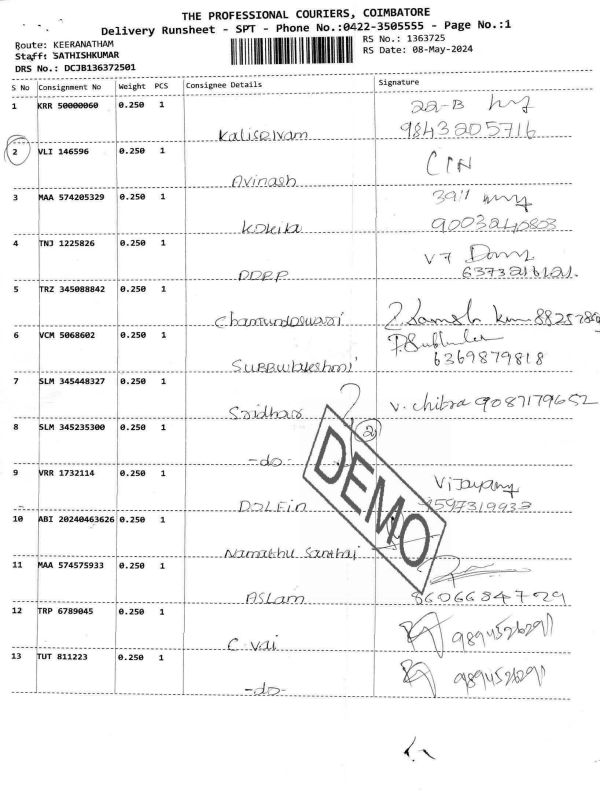 THE PROFESSIONAL COURIERS, COIMBATORE
Delivery Runsheet - SPT - Phone No.:0422-3505555 - Page No.:1
Route: KEERANATHAM
RS No.: 1363725
Staff: SATHISHKUMAR
RS Date: 08-May-2024
DRS No.: DCJB136372501
S No Consignment No Weight PCS Consignee Details Signature
1 KRR 50000060 0.250 1
22-B
Kaliselvam 9843205716
2 VLI 146596 0.250 1
Avinash
3 MAA 574205329 0.250 1
Kokila 9003240803
4 TNJ 1225826 0.250 1
V7
DDRP
5 TRZ 345088842 0.250 1
6 VCM 5068602 0.250 1
6369879818
7 SLM 345448327 0.250 1
Sridhar V. Chitra 9087179652
8 SLM 345235300 0.250 1
2
-do-
DEMO
9 VRR 1732114 0.250 1
DOLFin
10 ABI 20240463626 0.250 1
Namathu Santhai
11 MAA 574575933 0.250 1
ASLam 8606684729
12 TRP 6789045 0.250 1
C. vai
13 TUT 811223 0.250 1
-do-